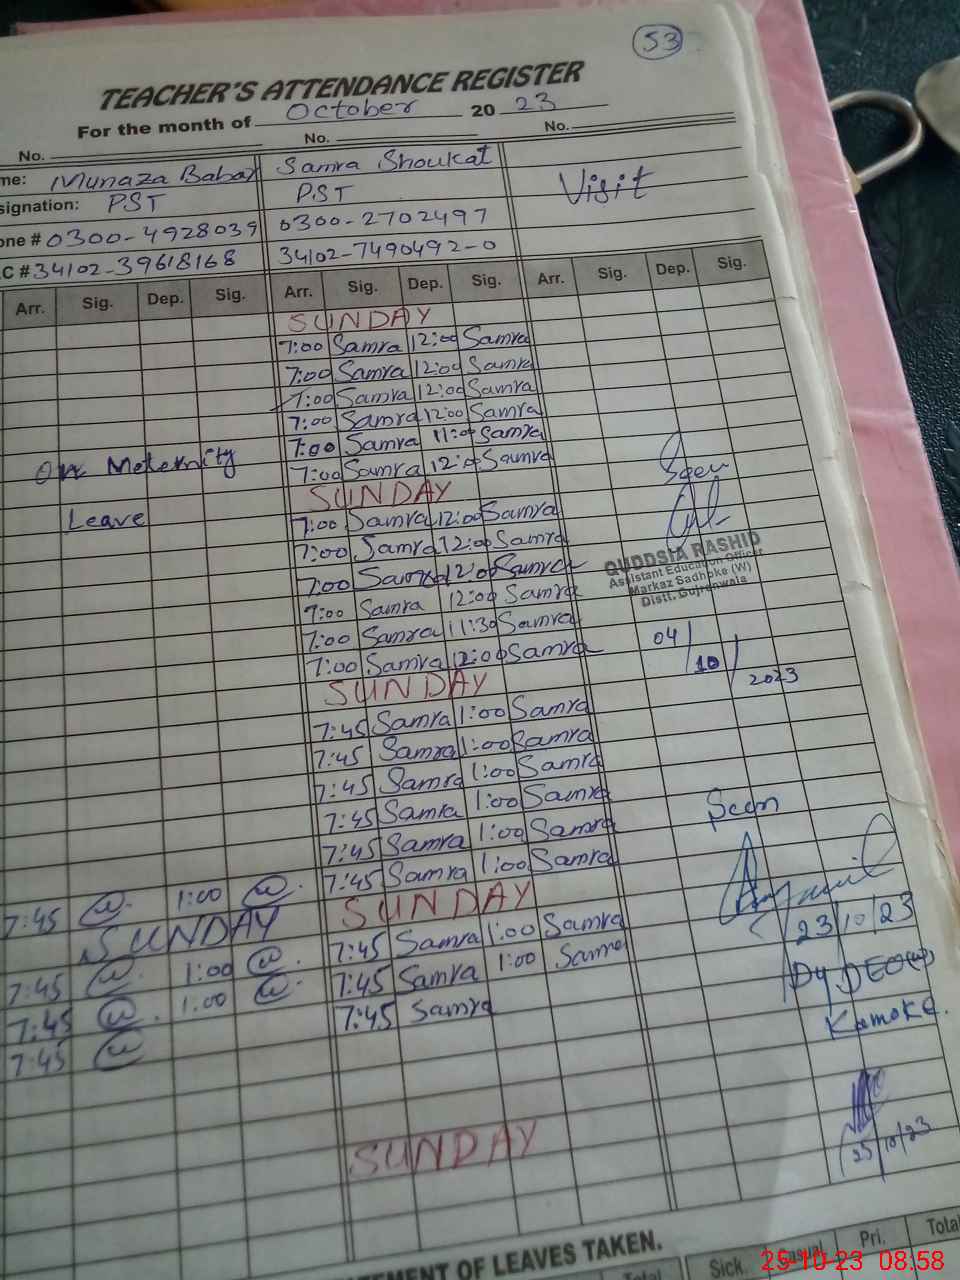 53
TEACHER'S ATTENDANCE REGISTER
For the month of October 2023
No. No. No.
me: Munaza Babar Samra Shoukat Visit
signation: PST PST
one # 0300-4928039 0300-2702497
C # 34102-39618168 34102-7490492-0
Arr. Sig. Dep. Sig. Arr. Sig. Dep. Sig. Arr. Sig. Dep. Sig.
SUNDAY
7:00 Samra 12:00 Samra
7:00 Samra 12:00 Samra
7:00 Samra 12:00 Samra
7:00 Samra 12:00 Samra
7:00 Samra 11:00 Samra
On Meternity 7:00 Samra 12:00 Samra Seen
SUNDAY
Leave 7:00 Samra 12:00 Samra
7:00 Samra 12:00 Samra
QUDDSIA RASHID
Assistant Education Officer
Markaz Sadhoke (W)
Distt. Gujranwala
7:00 Samra 12:00 Samra
7:00 Samra 12:00 Samra
7:00 Samra 11:30 Samra
7:00 Samra 12:00 Samra 04/10/2023
SUNDAY
7:45 Samra 1:00 Samra
7:45 Samra 1:00 Samra
7:45 Samra 1:00 Samra
7:45 Samra 1:00 Samra Seen
7:45 Samra 1:00 Samra
7:45 1:00 7:45 Samra 1:00 Samra
SUNDAY SUNDAY 23/10/23
7:45 1:00 7:45 Samra 1:00 Samra
7:45 1:00 7:45 Samra 1:00 Samra Dy DEO
7:45 7:45 Samra Kamoke.
SUNDAY 25/10/23
TEMENT OF LEAVES TAKEN.
Total Sick. Casual Pri. Total
25-10-23 08:58